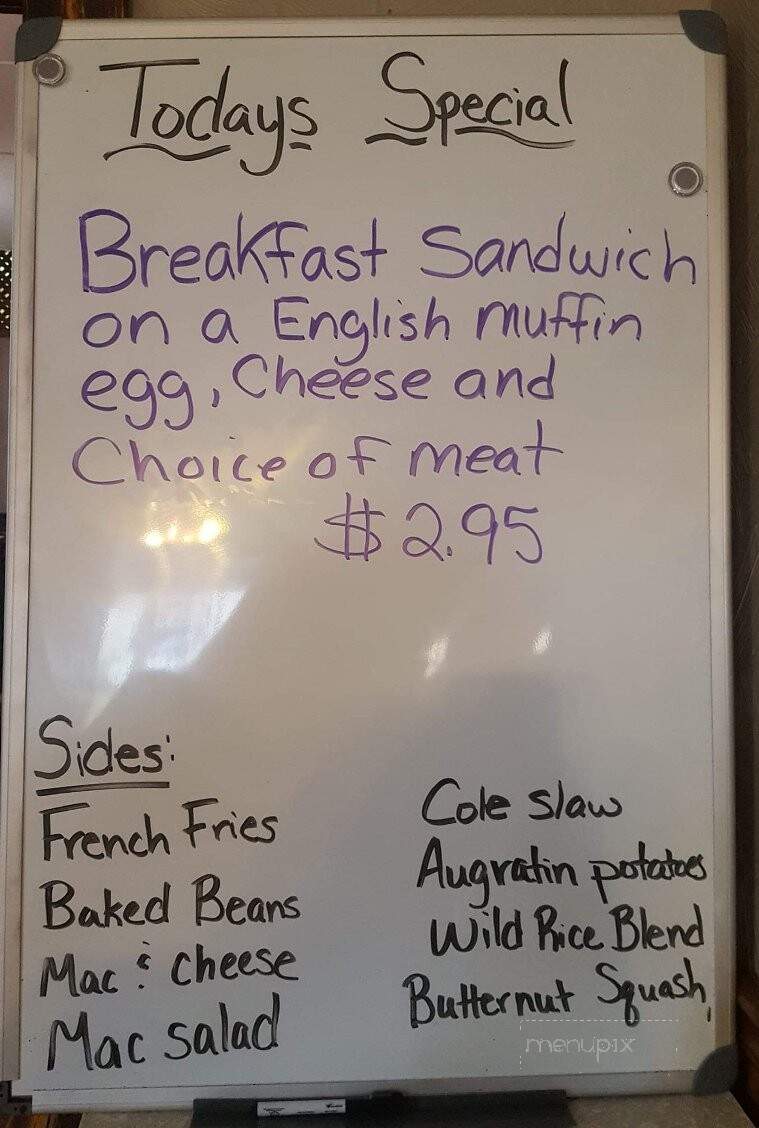 Todays Special
Breakfast Sandwich
on a English muffin
egg, Cheese and
Choice of meat
$2.95
Sides:
French Fries
Baked Beans
Mac & cheese
Mac salad
Cole slaw
Augratin potatoes
Wild Rice Blend
Butternut Squash,
menupix